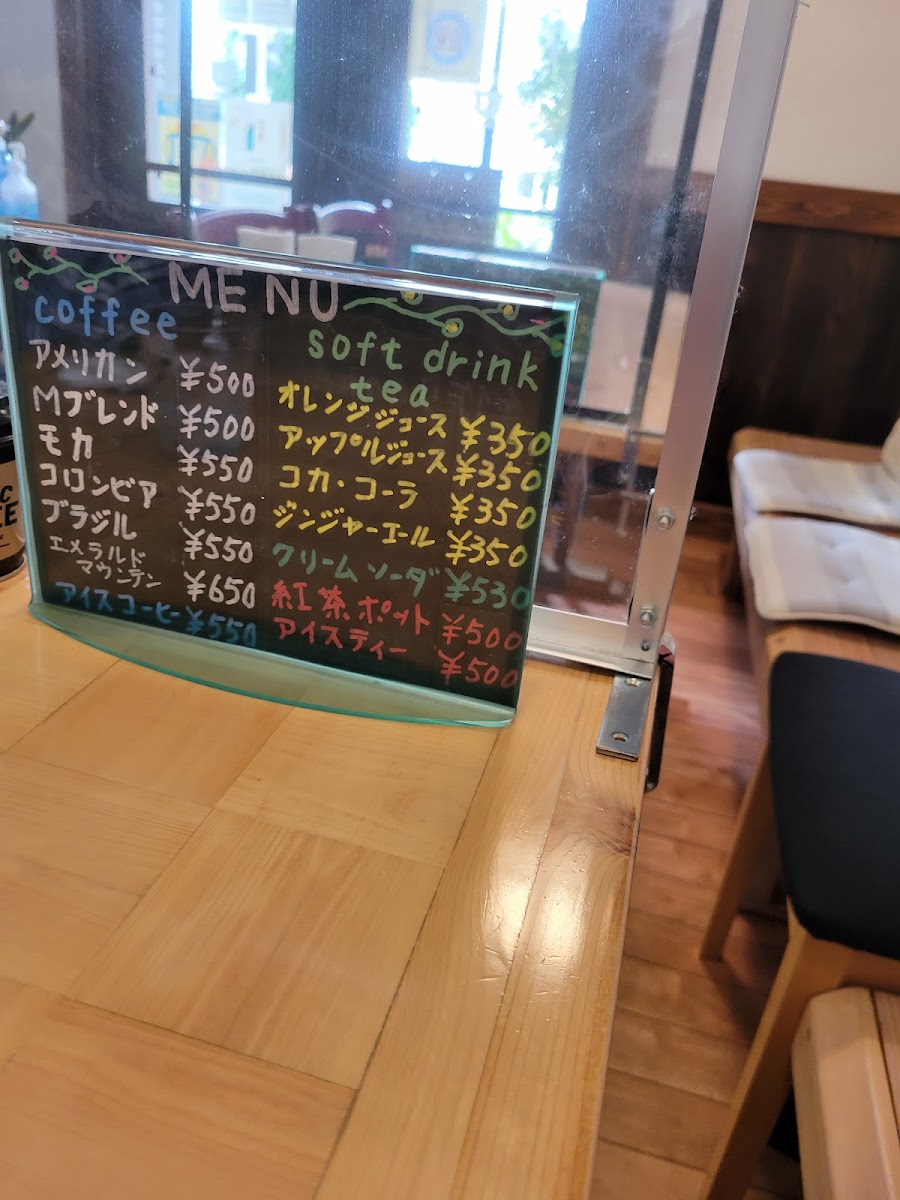 MENU
coffee
アメリカン ¥500
Mブレンド ¥500
モカ ¥550
コロンビア ¥550
ブラジル ¥550
エメラルド
マウンテン ¥650
アイスコーヒー ¥550
soft drink
tea
オレンジジュース ¥350
アップルジュース ¥350
コカ・コーラ ¥350
ジンジャーエール ¥350
クリームソーダ ¥530
紅茶ポット ¥500
アイスティー ¥500